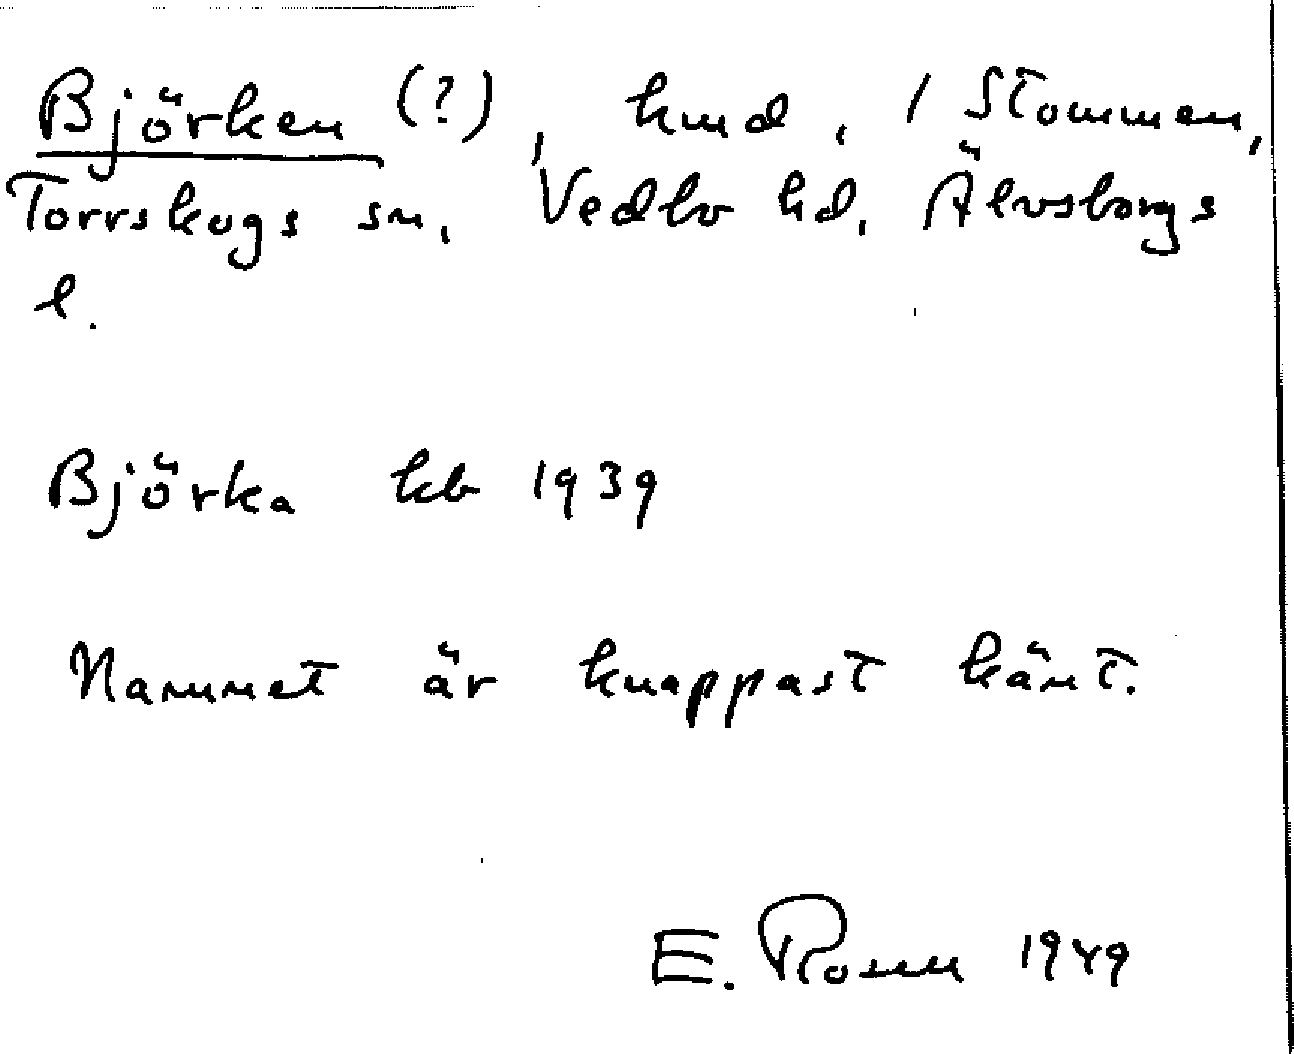 Björken (?), hmd, 1 Stommen,
Torrskogs sn, Vedbo hd, Älvsborgs
l.
Björka kb 1939
Namnet är knappast känt.
E. Rosén 1949